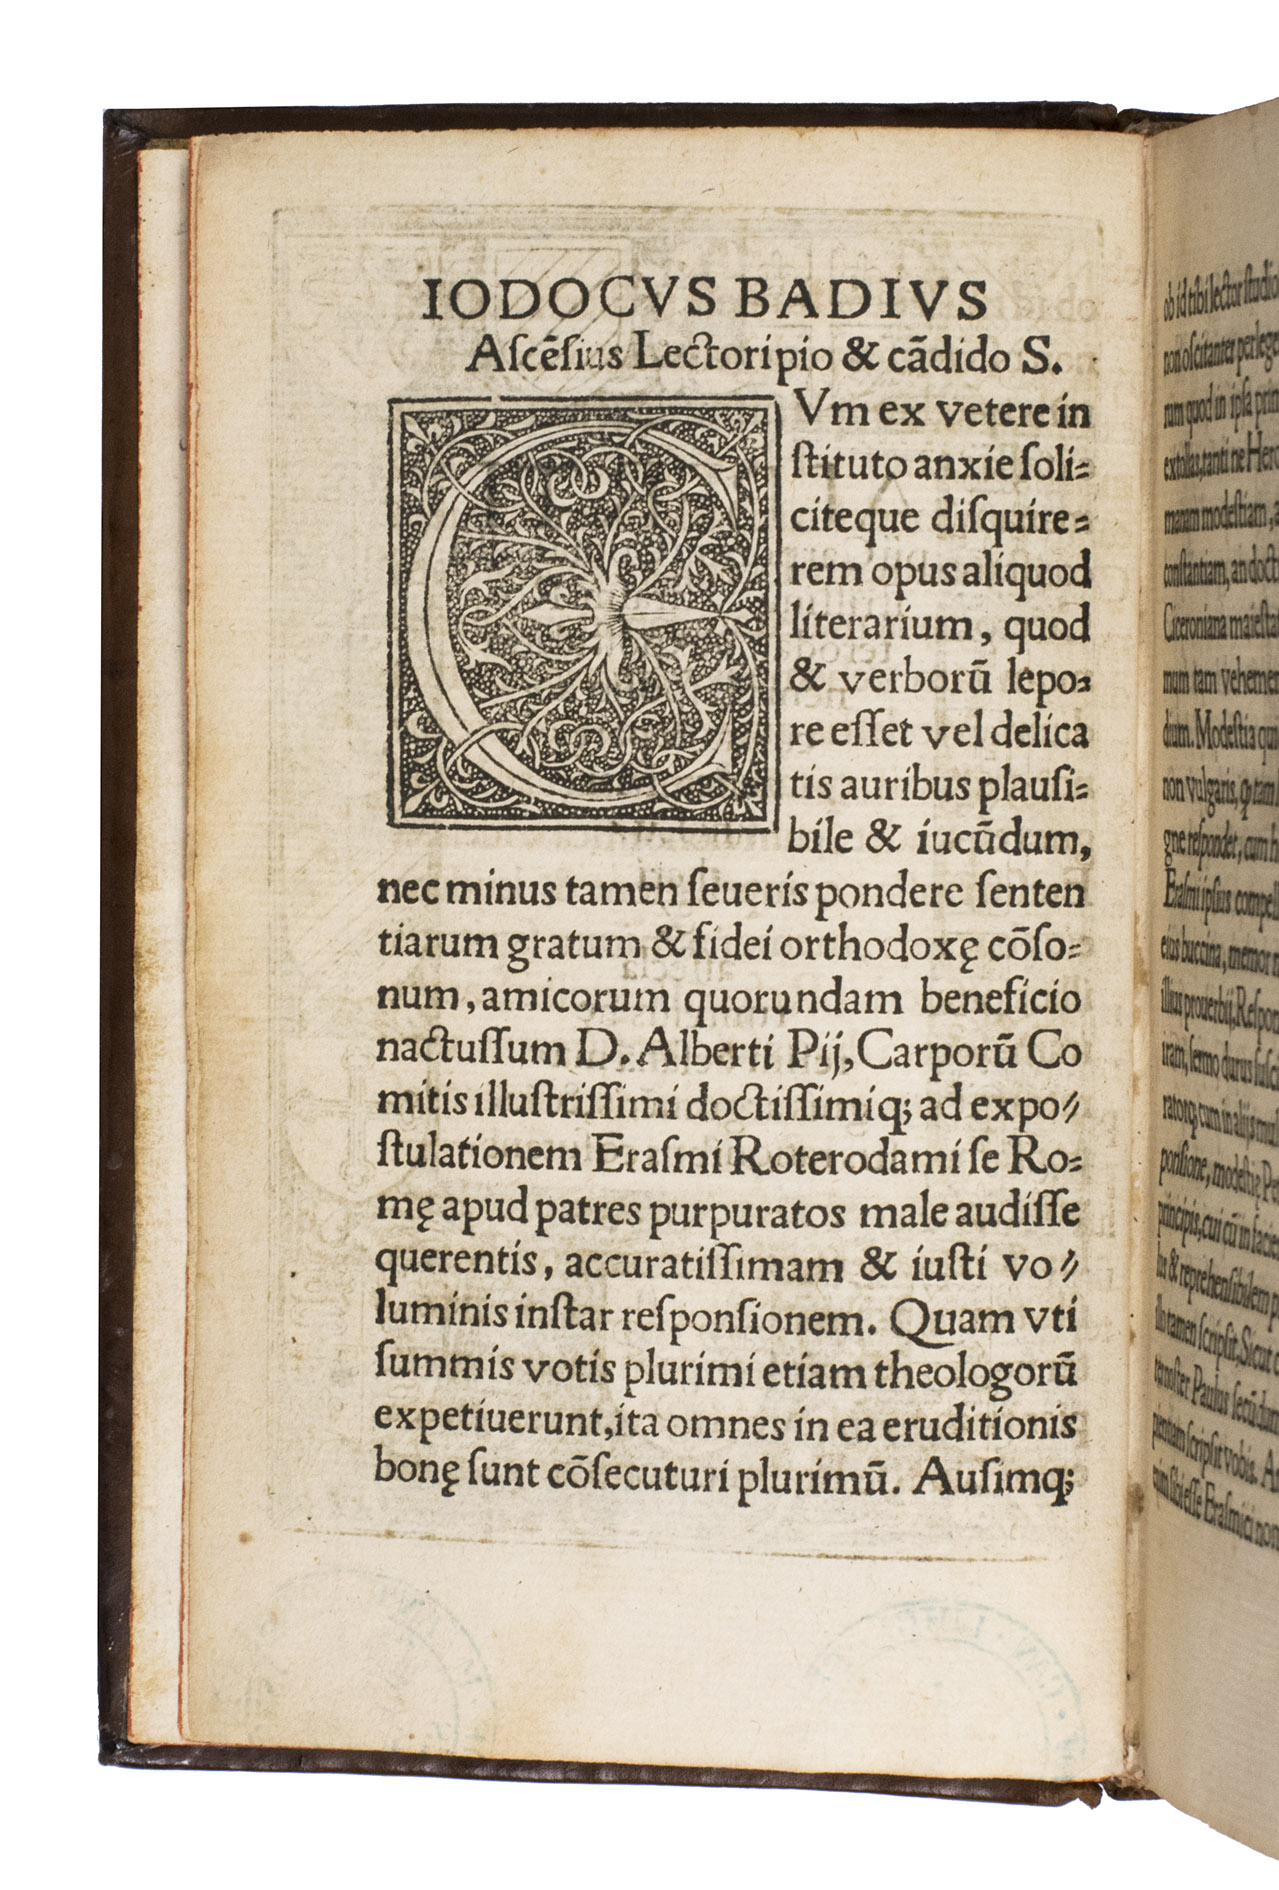 IODOCVS BADIVS
Aſcēſius Lectori pio & cādido S.
CVm ex vetere in
ſtituto anxie ſoli-
citeque diſquire-
rem opus aliquod
literarium, quod
& verborū lepo-
re eſſet vel delica
tis auribus plauſi-
bile & iucūdum,
nec minus tamen ſeueris pondere ſenten
tiarum gratum & fidei orthodoxę cōſo-
num, amicorum quorundam beneficio
nactuſſum D. Alberti Pij, Carporū Co
mitis illuſtriſſimi doctiſſimiq; ad expo-
ſtulationem Eraſmi Roterodami ſe Ro-
mę apud patres purpuratos male audiſſe
querentis, accuratiſſimam & iuſti vo-
luminis inſtar reſponſionem. Quam vti
ſummis votis plurimi etiam theologorū
expetiuerunt, ita omnes in ea eruditionis
bonę ſunt cōſecuturi plurimū. Auſimq;
ob id tibi lector
non oſcitanter
rum quod in ipſa
extollas, tanti ne
modeſtiam,
conſtantiam, an
Ciceroniana
num tam
dium. Modeſtia
non vulgaris,
gne reſpondet, cum
Eraſmi ipſius
eius buccina, memor
illius prouerbij,
iram, ſermo durus
ratorq; cum in alijs
ponſione, modeſtię
principis, cui cū in
& reprehenſibilem
tamen ſcripſit, Sicut
Paulus
ſcripſit vobis.
ſibi eſſe Eraſmici